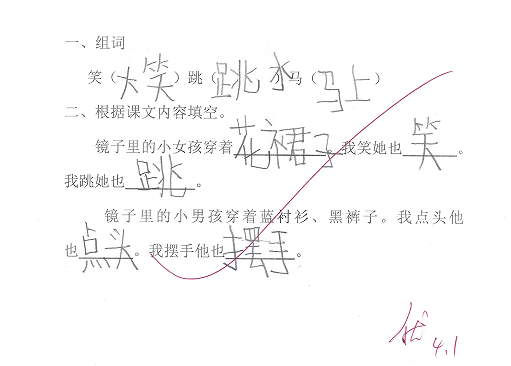 一、组词
笑（大笑）跳（跳水）马（马上）
二、根据课文内容填空。
镜子里的小女孩穿着花裙子。我笑她也笑。
我跳她也跳。
镜子里的小男孩穿着蓝衬衫、黑裤子。我点头他
也点头。我摆手他也摆手。
优
4.1